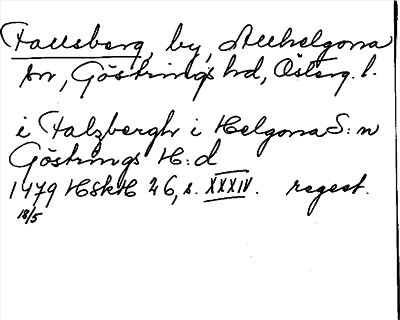 Fallsberg, by, Allhelgona
sn, Göstrings hd, Österg. l.
i Falzbergh i Helgona S:n
Göstrings H:d
1479 HSkH 26, s. XXXIV. regest.
18/5